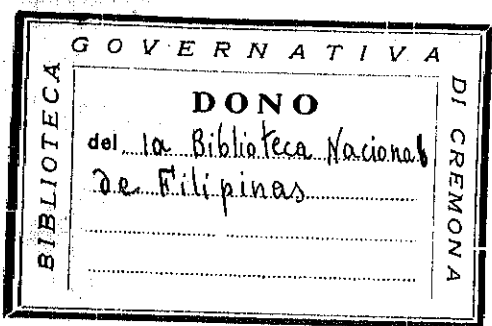 BIBLIOTECA
GOVERNATIVA
DI CREMONA
DONO
del la Biblioteca Nacional
de Filipinas